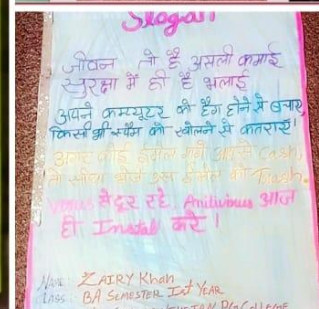 Slogan
जीवन तो है असली कमाई
सुरक्षा में ही है भलाई
अपने कम्प्यूटर को हैग होने से बचाए
किसी भी स्पैम को खोलने से कतराए।
अगर कोई ईमेल मांगे आपसे Cash,
Trash.
Virus से दूर रहे Antivirus आज
ही Instal करे।
NAME ZAIRY Khan
CLASS BA SEMESTER Ist YEAR